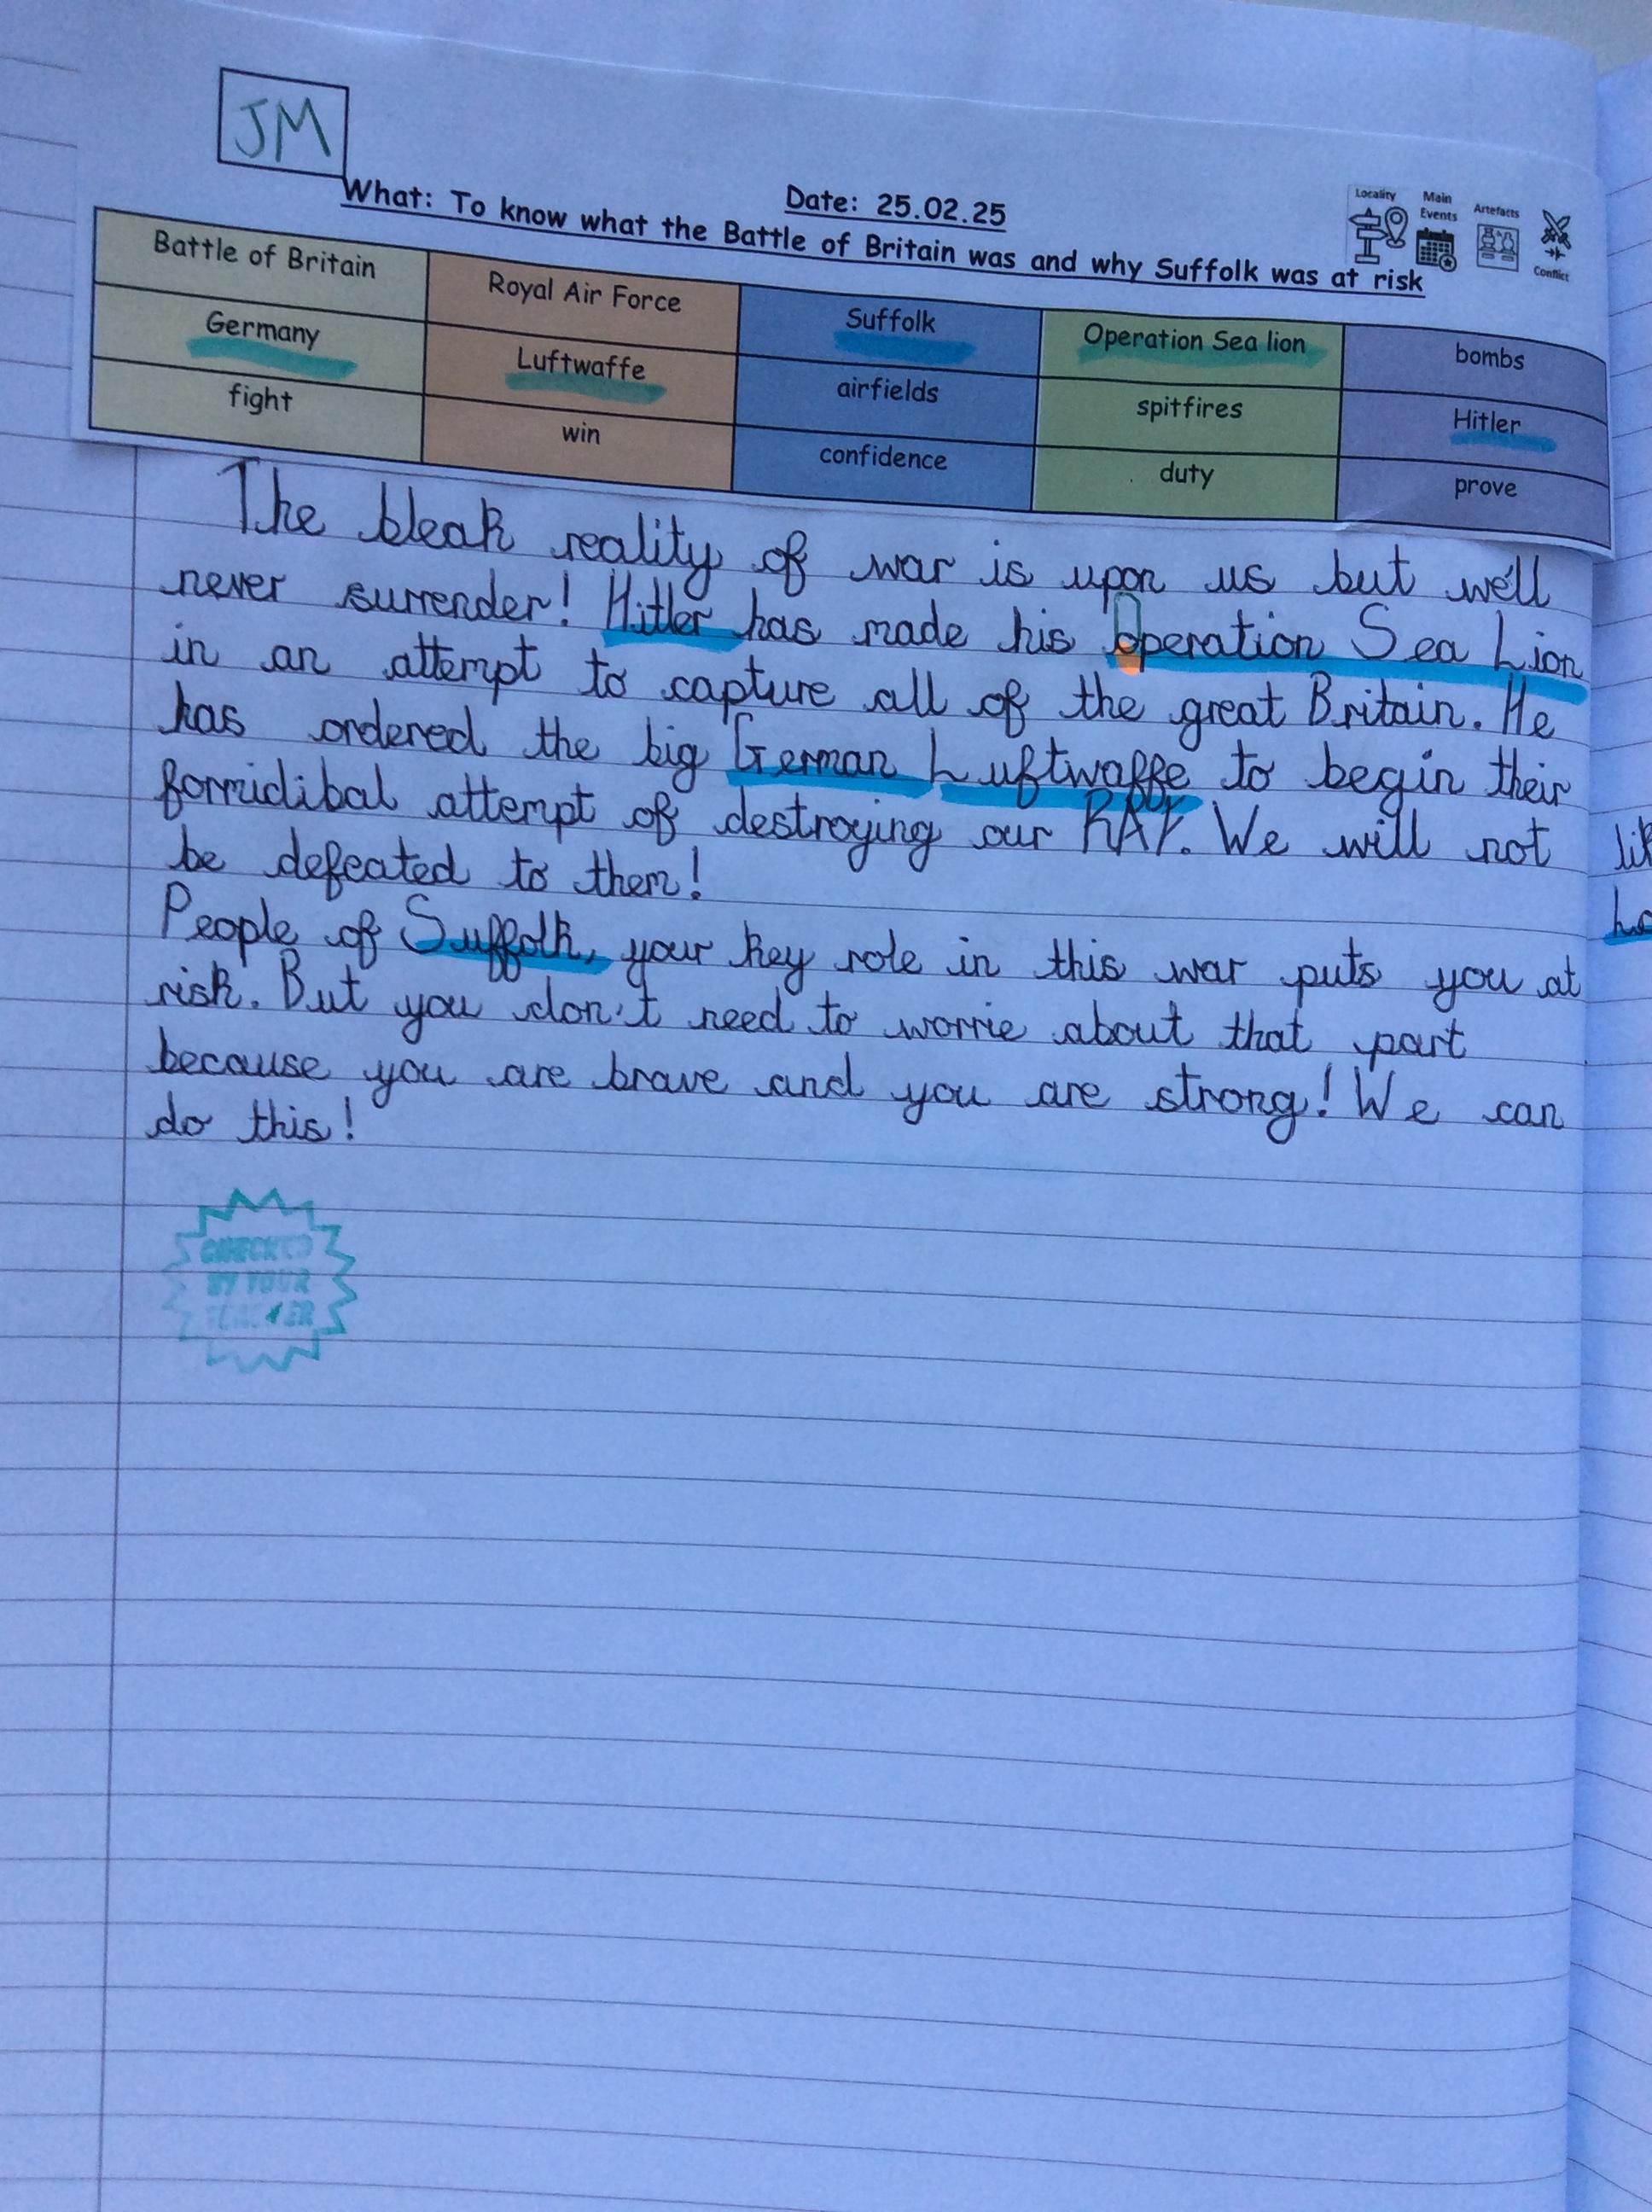 JM
Date: 25.02.25
What: To know what the Battle of Britain was and why Suffolk was at risk
Locality
Main Events
Artefacts
Conflict
Battle of Britain
Royal Air Force
Suffolk
Operation Sea lion
bombs
Germany
Luftwaffe
airfields
spitfires
Hitler
fight
win
confidence
duty
prove
The bleak reality of war is upon us but we'll
never surrender! Hitler has made his Operation Sea Lion
in an attempt to capture all of the great Britain. He
has ordered the big German Luftwaffe to begin their
formidibal attempt of destroying our RAF. We will not
be defeated to them!
People of Suffolk, your key role in this war puts you at
risk. But you don't need to worrie about that part
because you are brave and you are strong! We can
do this!
CHECKED
BY YOUR
TEACHER